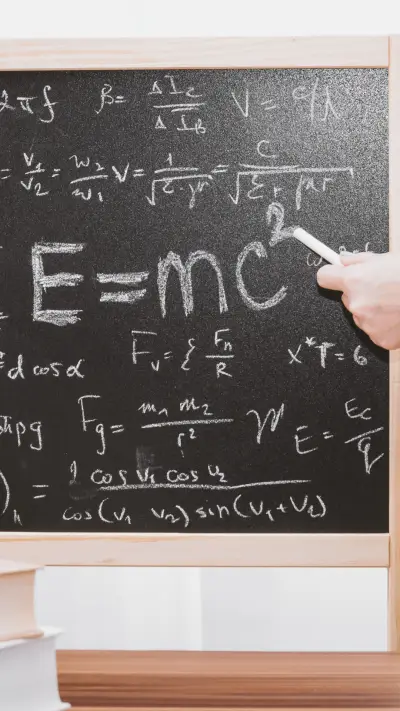 2πf β= ΔI_C/ΔI_B V = c/λ
= V₁/V₂ = W₂/W₁ V = 1/√(ε·μ) = c/√(ε_r μ_r)
E=mc²
= d cos α F_v = ξ F_n/R x*T=6
F_g = m₁ m₂/r² E = E_C/q
= 2 cos v₁ cos v₂/cos(v₁ v₂) sin(v₁+v₂)